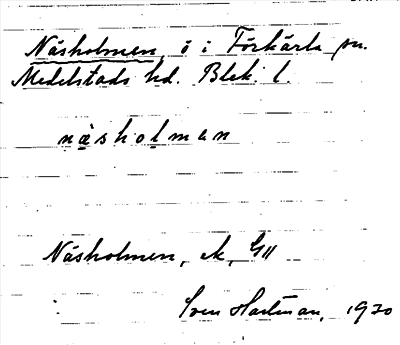 Näsholmen ö i Förkärla sn.
Medelstads hd. Blek. l.
näsholmen
Näsholmen, ek,
Sven Hartman, 1930